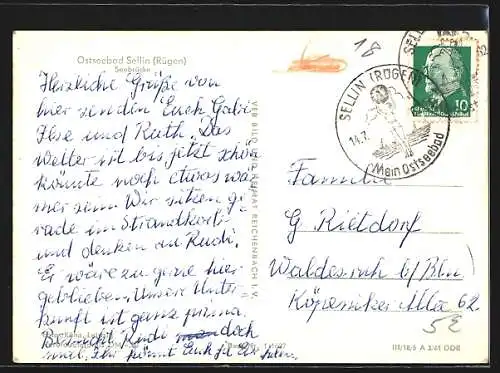 Ostseebad Sellin (Rügen)
Seebrücke
Herzliche Grüße von
hier senden Euch Gabi,
Ilse und Ruth. Das
Wetter ist bis jetzt schön
könnte noch etwas wär
mer sein. Wir sitzen ge
rade im Strandkorb
und denken an Rudi.
Er wäre zu gerne hier
geblieben. Unsere Unter
kunft ist ganz prima.
Besucht Rudi doch
mal, Ihr könnt Euch
VEB BILD HEIMAT REICHENBACH I. V.
18
SELLIN (RÜGEN)
14.7.
Mein Ostseebad
SELLIN
10
Familie
G. Rietdorf
Waldesruh b/Bln.
Köpenicker Allee 62
52